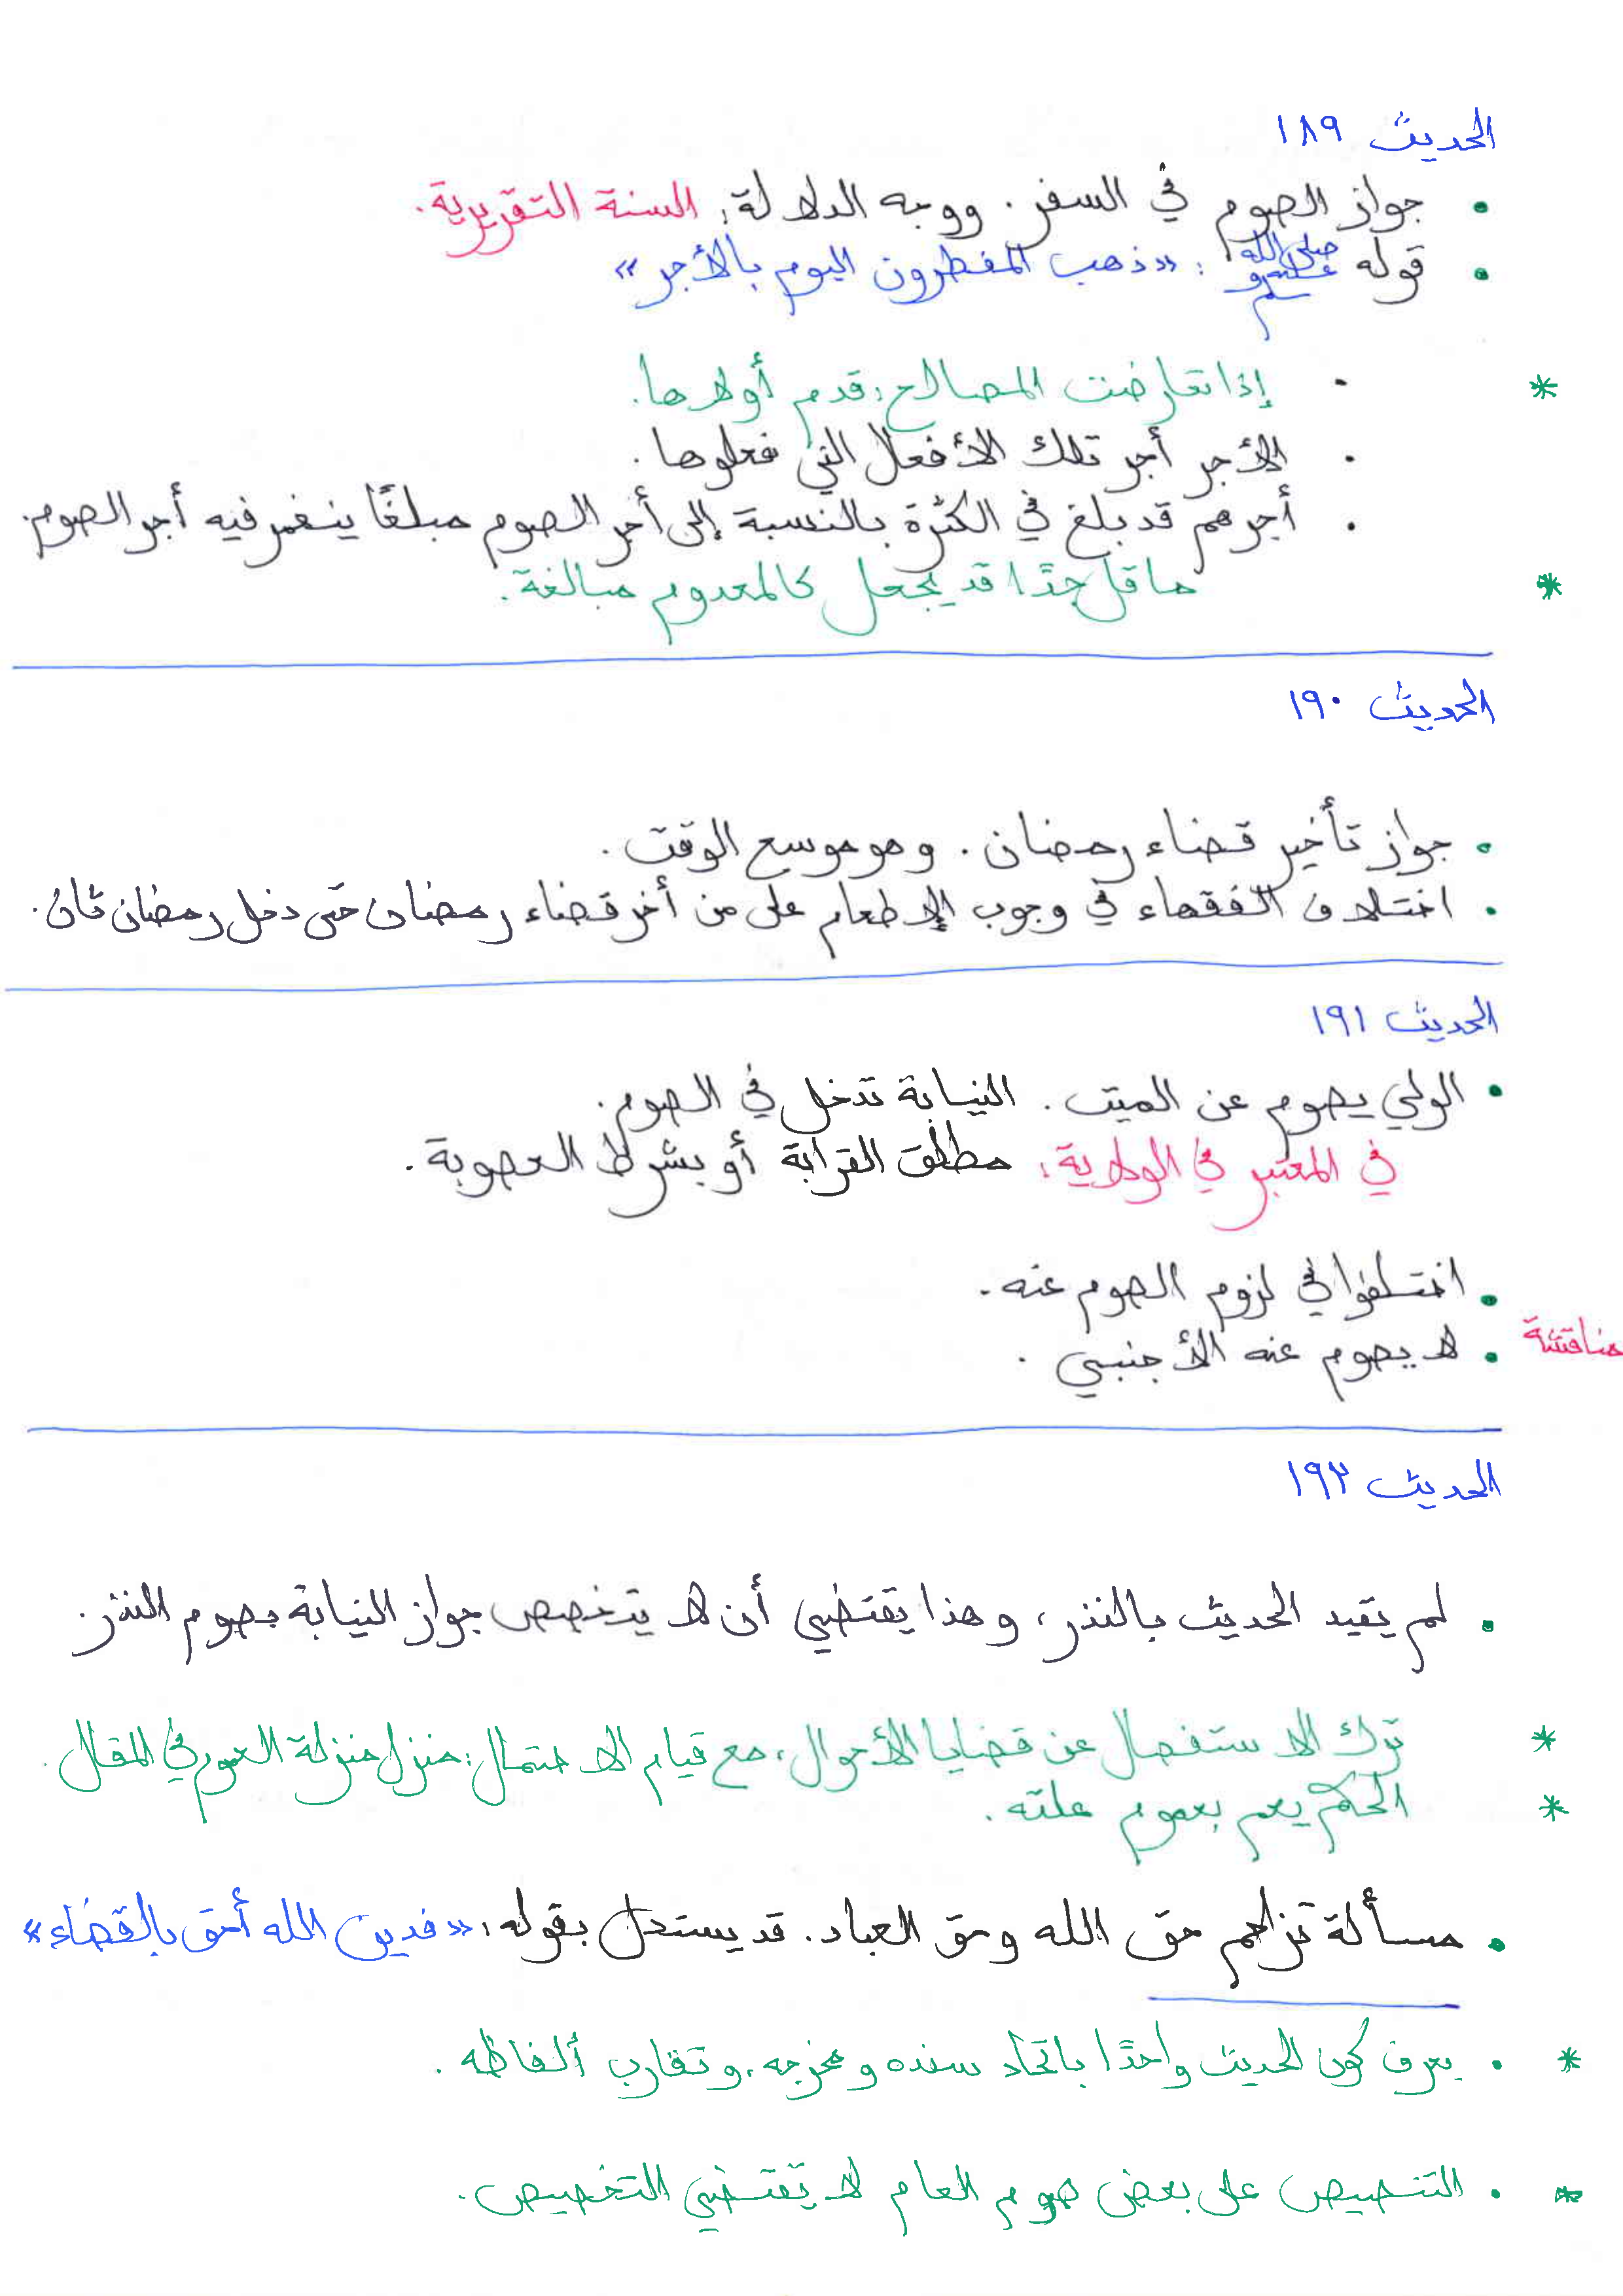 الحديث ١٨٩
• جواز الصوم في السفر. ووجه الدلالة: السنة التقريرية.
• قوله صلى الله عليه وسلم: «ذهب المفطرون اليوم بالأجر»
* . إذا تعارضت المصالح؛ قدم أولاها.
. الأجر أجر تلك الأفعال التي فعلوها.
. أجرهم قد بلغ في الكثرة بالنسبة إلى أجر الصوم مبلغًا ينغمر فيه أجر الصوم.
* ما قل جدًا قد يجعل كالمعدوم مبالغة.
الحديث ١٩٠
• جواز تأخير قضاء رمضان. وهو موسع الوقت.
• اختلاف الفقهاء في وجوب الإطعام على من أخر قضاء رمضان حتى دخل رمضان ثان.
الحديث ١٩١
• الولي يصوم عن الميت. النيابة تدخل في الصوم.
في المعتبر في الولاية: مطلق القرابة أو بشرط العصوبة.
• اختلفوا في لزوم الصوم عنه.
مناقشة • لا يصوم عنه الأجنبي.
الحديث ١٩٢
• لم يقيد الحديث بالنذر، وهذا يقتضي أن لا يتخصص جواز النيابة بصوم النذر.
* ترك الاستفصال عن قضايا الأحوال، مع قيام الاحتمال؛ منزل منزلة العموم في المقال.
* الحكم يعم بعموم علته.
• مسألة تزاحم حق الله وحق العباد. قد يستدل بقوله: «فدين الله أحق بالقضاء»
* . يعرف كون الحديث واحدًا باتحاد سنده ومخرجه، وتقارب ألفاظه.
* . التنصيص على بعض صور العام لا يقتضي التخصيص.